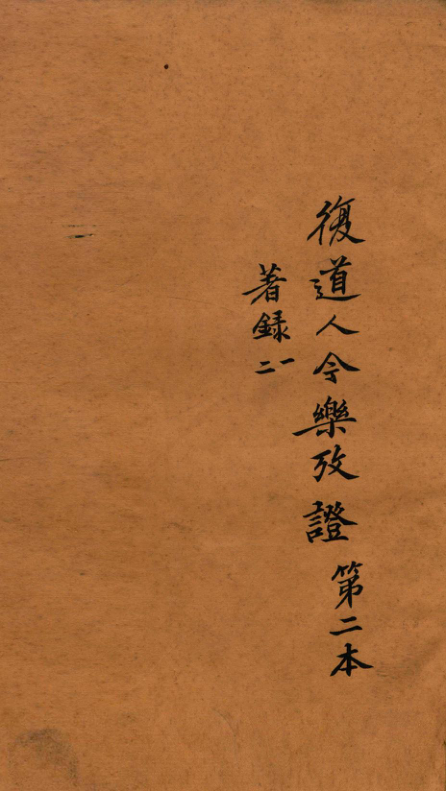 復道人今樂攷證 第二本
著録 一
二